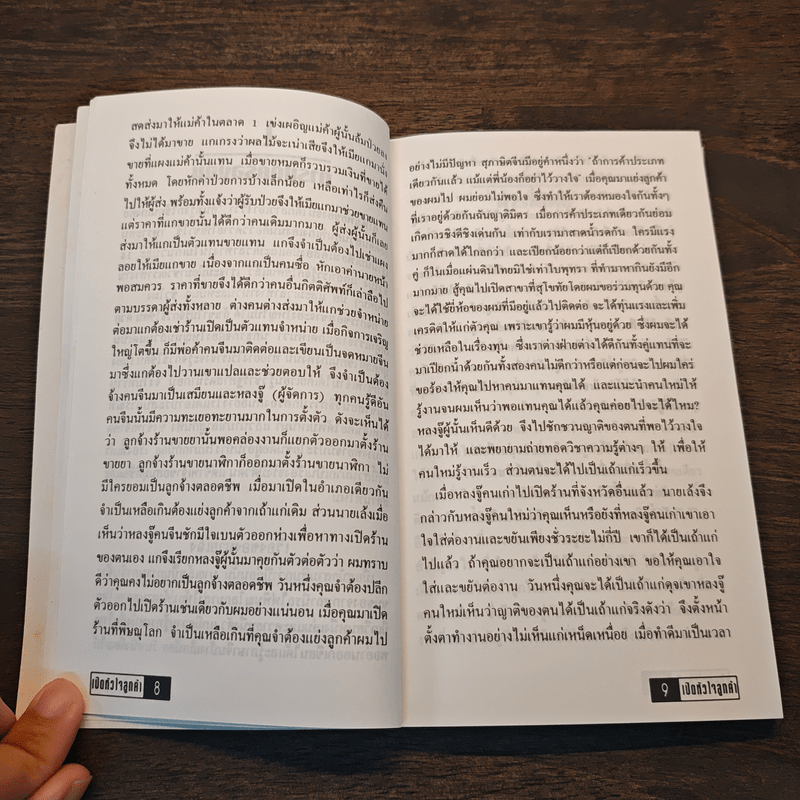 สดส่งมาให้แม่ค้าในตลาด 1 เข่งเผอิญแม่ค้าผู้นั้นล้มป่วยลง
จึงไม่ได้มาขาย แกเกรงว่าผลไม้จะเน่าเสียจึงให้เมียแกมานั่ง
ขายที่แผงแม่ค้านั้นะแทน เมื่อขายหมดก็รวบรวมเงินที่ขายได้
ทั้งหมด โดยหักค่าป่วยการบ้างเล็กน้อย เหลือเท่าไรก็ส่งคืน
ไปให้ผู้ส่ง พร้อมทั้งแจ้งว่าผู้รับป่วยจึงให้เมียแกมาช่วยขายแทน
แต่ราคาที่แกขายนั้นได้ดีกว่าคนเดิมมากมาย ผู้ส่งผู้นั้นก็เลย
ส่งมาให้แกเป็นตัวแทนขายแทน แกจึงจำเป็นต้องไปเช่าแผง
ลอยให้เมียแกขาย เนื่องจากแกเป็นคนซื่อ หักเอาค่านายหน้า
พอสมควร ราคาที่ขายจึงได้ดีกว่าคนอื่นกิตติศัพท์ก็เล่าลือไป
ตามบรรดาผู้ส่งทั้งหลาย ต่างคนต่างส่งมาให้แกช่วยจำหน่าย
ต่อมาแกต้องเช่าร้านเปิดเป็นตัวแทนจำหน่าย เมื่อกิจการเจริญ
ใหญ่โตขึ้น ก็มีพ่อค้าคนจีนมาติดต่อและเขียนเป็นจดหมายจีน
มาซึ่งแกต้องไปวานเขาแปลและช่วยตอบให้ จึงจำเป็นต้อง
จ้างคนจีนมาเป็นเสมียนและหลงจู๊ (ผู้จัดการ) ทุกคนรู้ดีอัน
คนจีนนั้นมีความทะเยอทะยานมากในการตั้งตัว ดังจะเห็นได้
ว่า ลูกจ้างร้านขายยานั้นพอคล่องงานก็แยกตัวออกมาตั้งร้าน
ขายยา ลูกจ้างร้านขายนาฬิกาก็ออกมาตั้งร้านขายนาฬิกา ไม่
มีใครยอมเป็นลูกจ้างตลอดชีพ เมื่อมาเปิดในอำเภอเดียวกัน
จำเป็นเหลือเกินต้องแย่งลูกค้าจากเถ้าแก่เดิม ส่วนนายเล้งเมื่อ
เห็นว่าหลงจู๊คนจีนชักมีใจเบนตัวออกห่างเพื่อหาทางเปิดร้าน
ของตนเอง แกจึงเรียกหลงจู๊ผู้นั้นมาคุยกันตัวต่อตัวว่า ผมทราบ
ดีว่าคุณคงไม่อยากเป็นลูกจ้างตลอดชีพ วันหนึ่งคุณจำต้องปลีก
ตัวออกไปเปิดร้านเช่นเดียวกับผมอย่างแน่นอน เมื่อคุณมาเปิด
ร้านที่พิษณุโลก จำเป็นเหลือเกินที่คุณจำต้องแย่งลูกค้าผมไป
เปิดหัวใจลูกค้า 8
อย่างไม่มีปัญหา สุภาษิตจีนมีอยู่คำหนึ่งว่า "ถ้าการค้าประเภท
เดียวกันแล้ว แม้แต่พี่น้องก็อย่าไว้วางใจ" เมื่อคุณมาแย่งลูกค้า
ของผมไป ผมย่อมไม่พอใจ ซึ่งทำให้เราต้องหมองใจกันทั้งๆ
ที่เราอยู่ด้วยกันฉันญาติมิตร เมื่อการค้าประเภทเดียวกันย่อม
เกิดการชิงดีชิงเด่นกัน เท่ากับเรามาสาดน้ำรดกัน ใครมีแรง
มากก็สาดได้ไกลกว่า และเปียกน้อยกว่าแต่ก็เปียกด้วยกันทั้ง
คู่ ก็ในเมื่อแผ่นดินไทยมิใช่เท่าใบพุทรา ที่ทำมาหากินยังมีอีก
มากมาย สู้คุณไปเปิดสาขาที่สุโขทัยโดยผมขอร่วมทุนด้วย คุณ
จะได้ใช้ยี่ห้อของผมที่มีอยู่แล้วไปติดต่อ จะได้ทุ่นแรงและเพิ่ม
เครดิตให้แก่ตัวคุณ เพราะเขารู้ว่าผมมีหุ้นอยู่ด้วย ซึ่งผมจะได้
ช่วยเหลือในเรื่องทุน ซึ่งเราต่างฝ่ายต่างได้ดีกันทั้งคู่แทนที่จะ
มาเปียกน้ำด้วยกันทั้งสองคนไม่ดีกว่าหรือแต่ก่อนจะไปผมใคร่
ขอร้องให้คุณไปหาคนมาแทนคุณได้ และแนะนำคนใหม่ให้
รู้งานจนผมเห็นว่าพอแทนคุณได้แล้วคุณค่อยไปจะได้ไหม?
หลงจู๊ผู้นั้นเห็นดีด้วย จึงไปชักชวนญาติของตนที่พอไว้วางใจ
ได้มาให้ และพยายามถ่ายทอดวิชาความรู้ต่างๆ ให้ เพื่อให้
คนใหม่รู้งานเร็ว ส่วนตนจะได้ไปเป็นเถ้าแก่เร็วขึ้น
เมื่อหลงจู๊คนเก่าไปเปิดร้านที่จังหวัดอื่นแล้ว นายเล้งจึง
กล่าวกับหลงจู๊คนใหม่ว่าคุณเห็นหรือยังที่หลงจู๊คนเก่าเขาเอา
ใจใส่ต่องานและขยันเพียงชั่วระยะไม่กี่ปี เขาก็ได้เป็นเถ้าแก่
ไปแล้ว ถ้าคุณอยากจะเป็นเถ้าแก่อย่างเขา ขอให้คุณเอาใจ
ใส่และขยันต่องาน วันหนึ่งคุณจะได้เป็นเถ้าแก่ดุจเขาหลงจู๊
คนใหม่เห็นว่าญาติของตนได้เป็นเถ้าแก่จริงดังว่า จึงตั้งหน้า
ตั้งตาทำงานอย่างไม่เห็นแก่เหน็ดเหนื่อย เมื่อทำดีมาเป็นเวลา
9 เปิดหัวใจลูกค้า